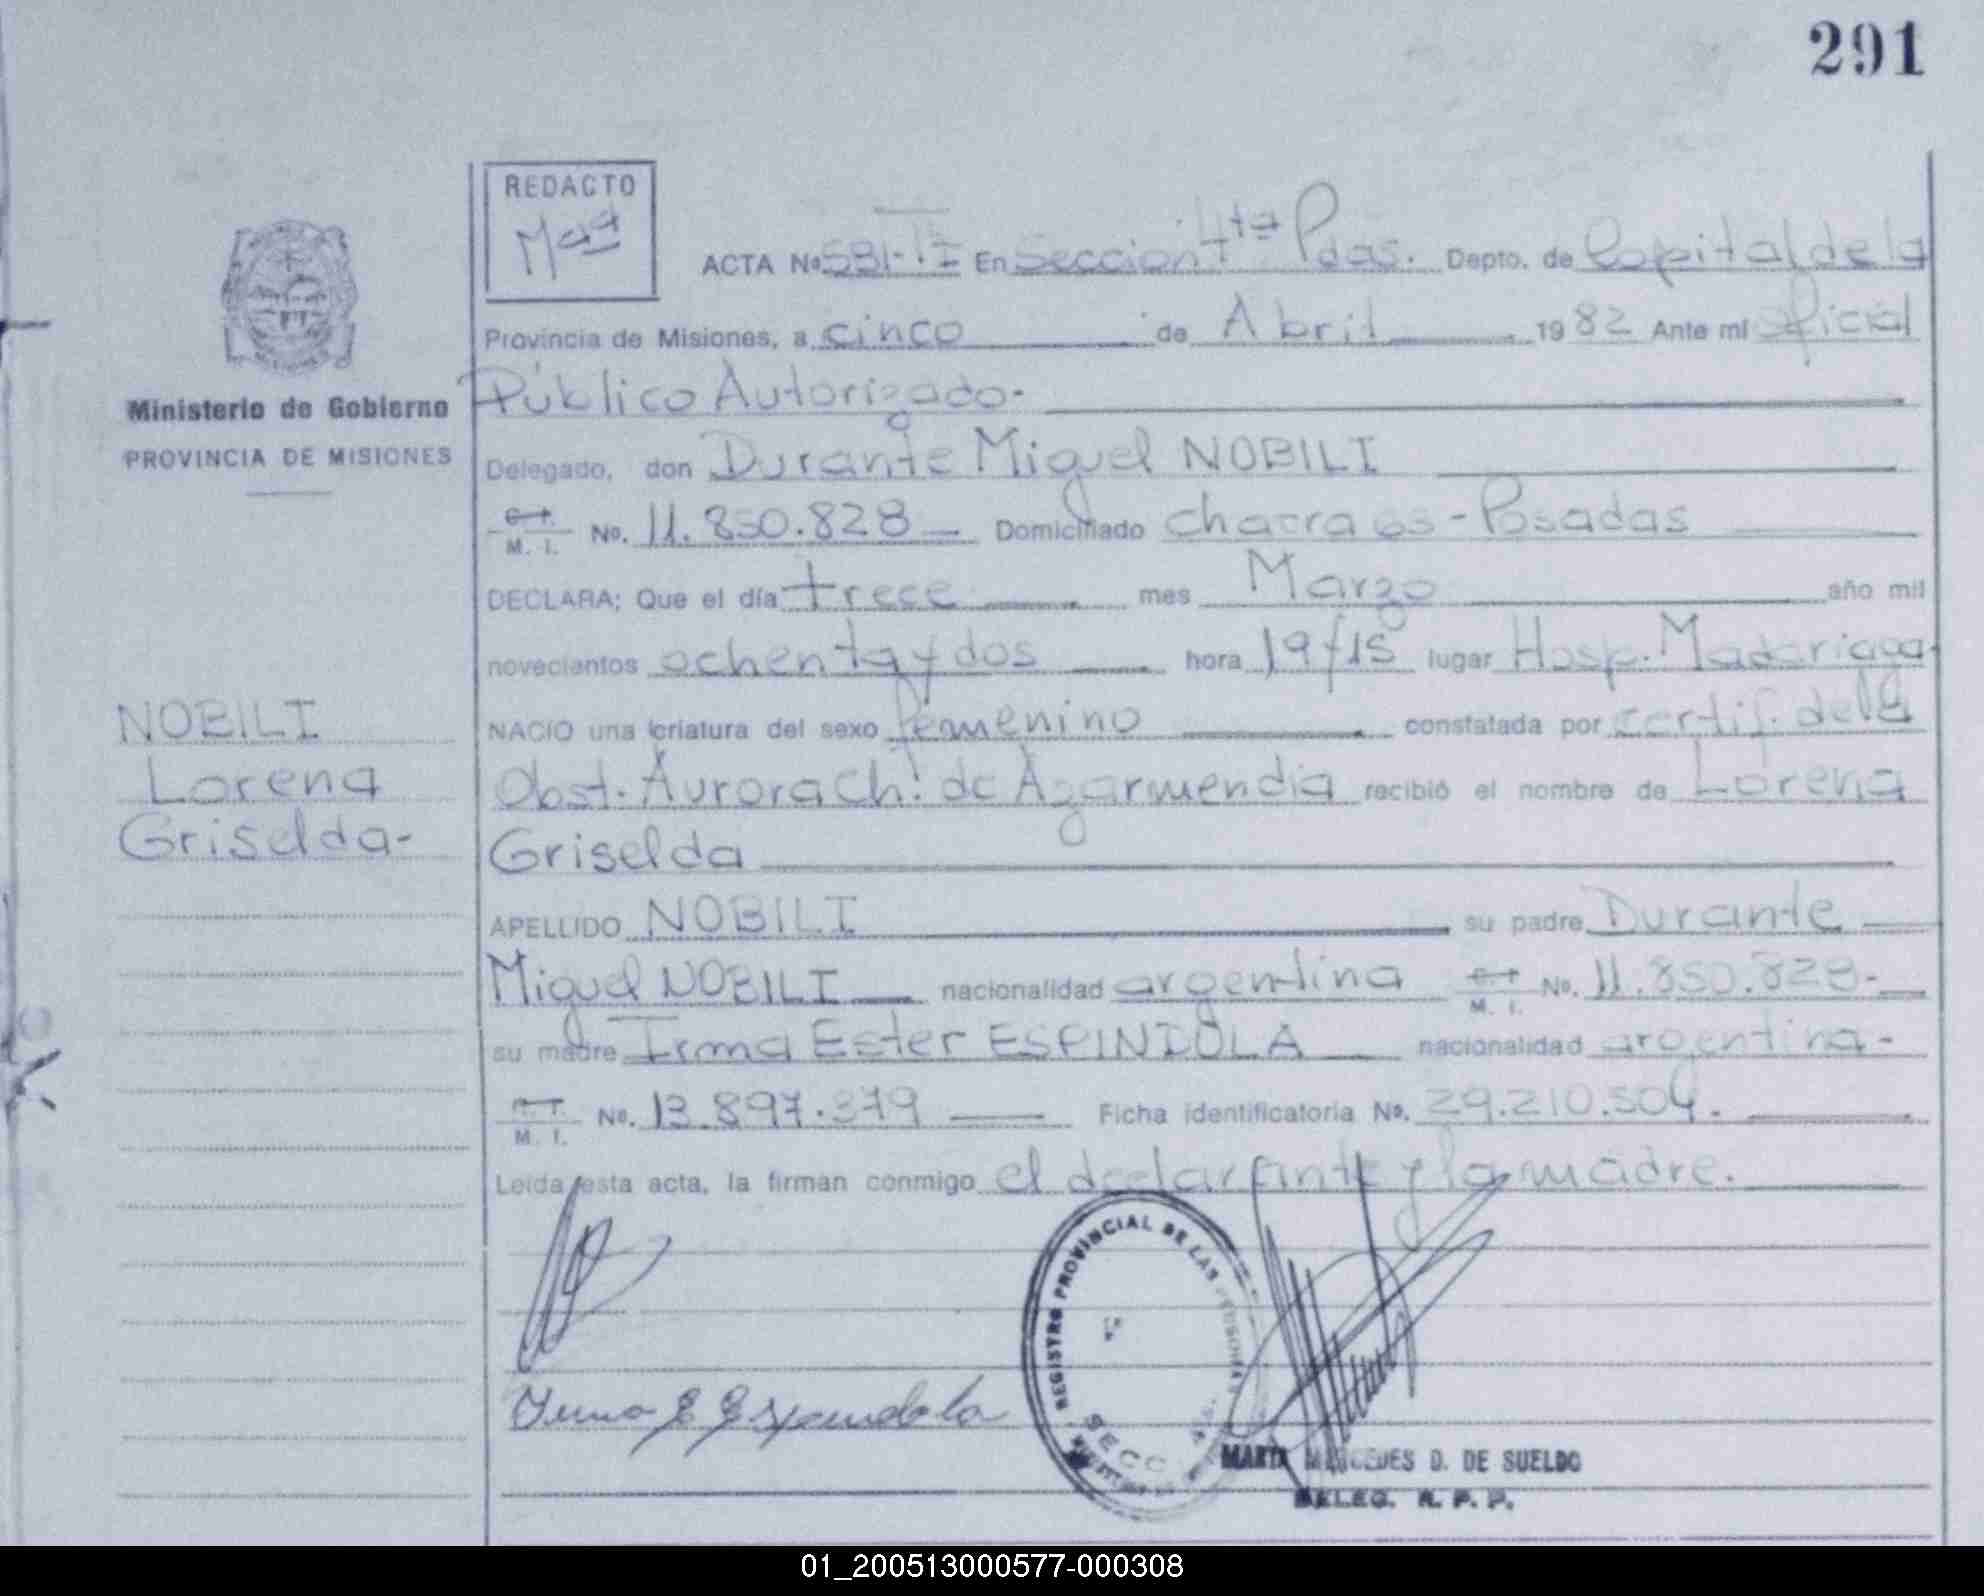 291
REDACTO
ACTA Nº 581-TI En Sección 4ta Pdas. Depto. de Capital de la
Provincia de Misiones, a cinco de Abril 1982 Ante mí oficial
Público Autorizado.
Ministerio de Gobierno
PROVINCIA DE MISIONES
Delegado, don Durante Miguel NOBILI
C.I. M. I. No. 11.850.828 Domiciliado chacra 63 - Posadas
DECLARA; Que el día trece mes Marzo año mil
novecientos ochenta y dos hora 19 y 15 lugar Hosp. Madariaga
NACIO una criatura del sexo femenino constatada por certif. de la
Obst. Aurora Ch. de Azarmendia recibió el nombre de Lorena
Griselda
NOBILI
Lorena
Griselda-
APELLIDO NOBILI su padre Durante
Miguel NOBILI nacionalidad argentina C.I. M. I. No. 11.850.828-
su madre Irma Ester ESPINDOLA nacionalidad argentina-
C.I. M. I. No. 13.897.379 Ficha identificatoria No. 29.210.504.
Leída esta acta, la firman conmigo el declarante y la madre.
REGISTRO PROVINCIAL DE LAS PERSONAS
SECC
Irma E Espindola
MARTA MERCEDES D. DE SUELDO
DELEG. R. P. P.
01_200513000577-000308